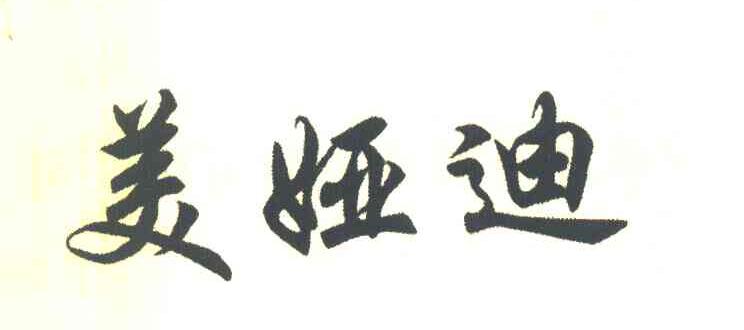 美娅迪